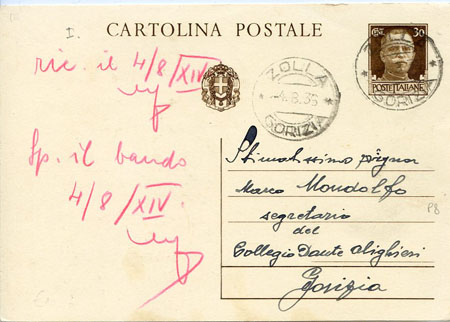 I.
CARTOLINA POSTALE
CENT. 30
POSTE ITALIANE
ZOLLA
-4.8.36
* GORIZIA *
* GORIZIA *
ric. il 4/8/XIV
Sp. il bando
4/8/XIV.
Stimatissimo signor
Marco Mondolfo
segretario
del
Collegio Dante Alighieri
Gorizia
P8